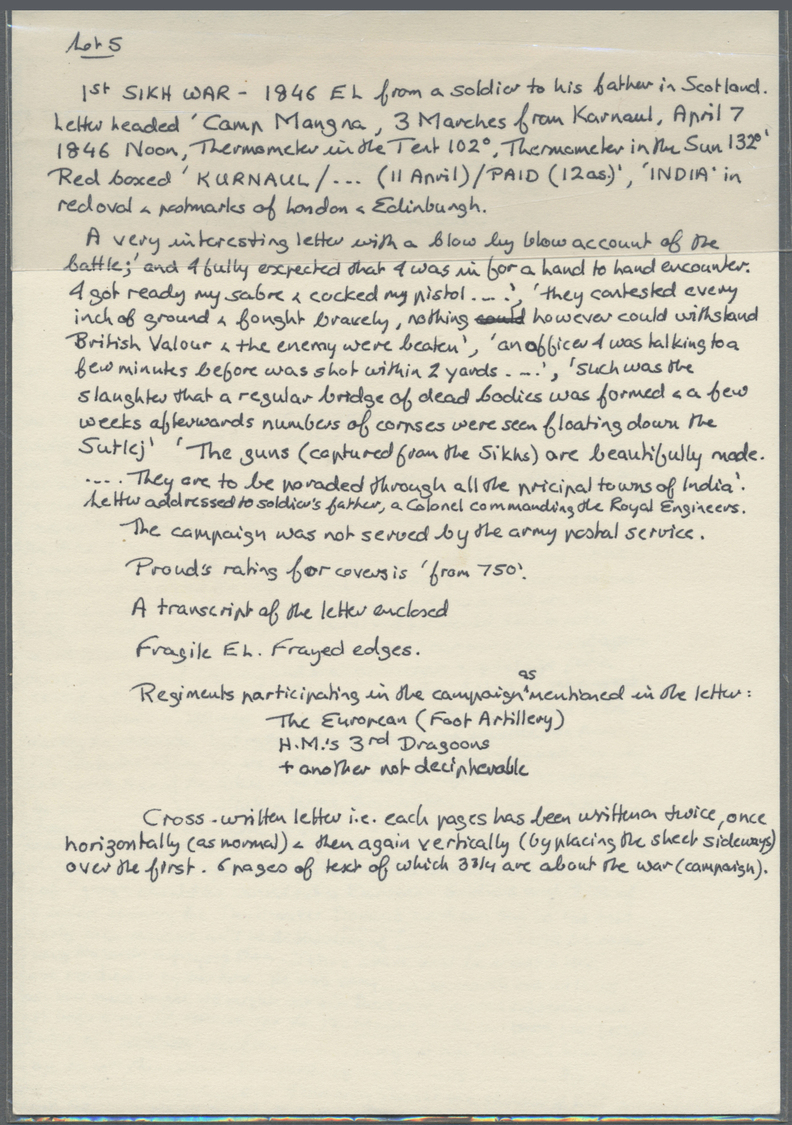 Lot 5
1st SIKH WAR - 1846 EL from a soldier to his father in Scotland.
Letter headed 'Camp Mangna, 3 Marches from Karnaul, April 7
1846 Noon, Thermometer in the Tent 102°, Thermometer in the Sun 132°'
Red boxed 'KURNAUL/... (11 April)/PAID (12as.)', 'INDIA' in
red oval & postmarks of London & Edinburgh.
A very interesting letter with a blow by blow account of the
battle; 'and I fully expected that I was in for a hand to hand encounter.
I got ready my sabre & cocked my pistol ....', 'they contested every
inch of ground & fought bravely, nothing could however could withstand
British Valour & the enemy were beaten', 'an officer I was talking to a
few minutes before was shot within 2 yards ....', 'such was the
slaughter that a regular bridge of dead bodies was formed & a few
weeks afterwards numbers of corpses were seen floating down the
Sutlej' 'The guns (captured from the Sikhs) are beautifully made.
.... They are to be paraded through all the pricipal towns of India'.
Letter addressed to soldier's father, a Colonel commanding the Royal Engineers.
The campaign was not served by the army postal service.
Proud's rating for covers is 'from 750'.
A transcript of the letter enclosed
Fragile EL. Frayed edges.
Regiments participating in the campaign as mentioned in the letter:
The European (Foot Artillery)
H.M.'s 3rd Dragoons
+ another not decipherable
Cross-written letter i.e. each pages has been written on twice, once
horizontally (as normal) & then again vertically (by placing the sheet sideways)
over the first. 6 pages of text of which 3 3/4 are about the war (campaign).